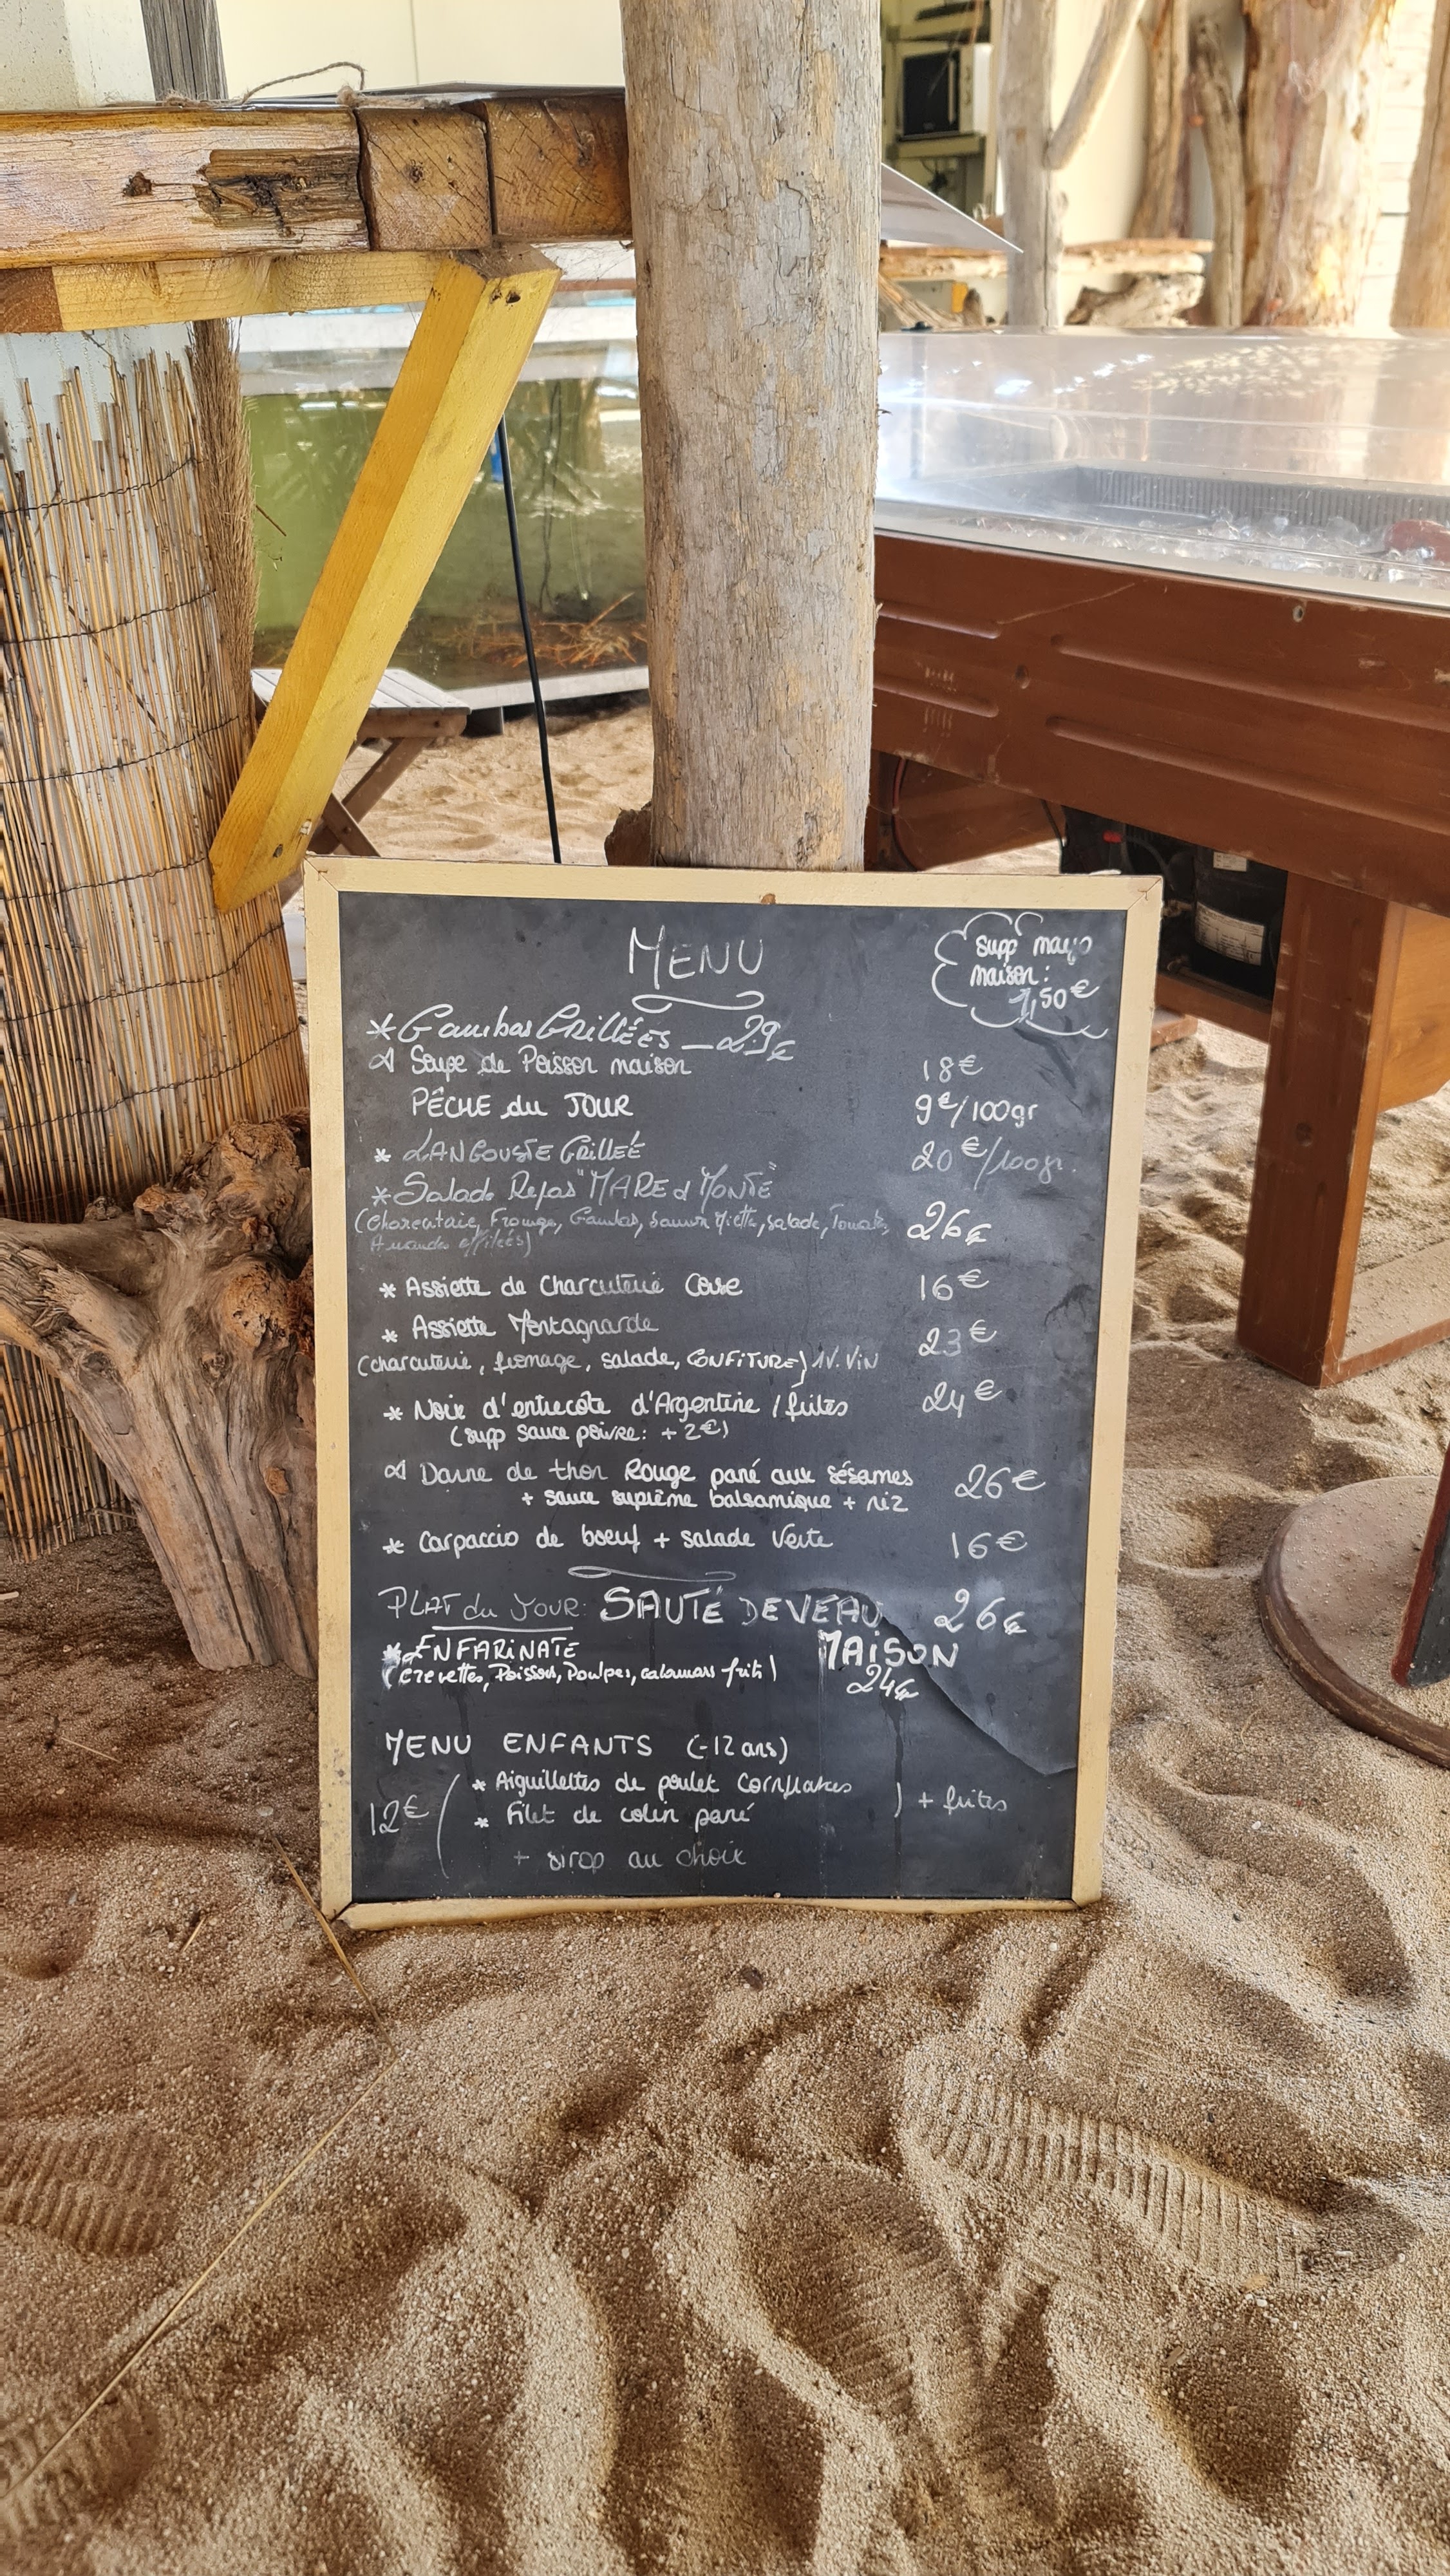 MENU
supp mayo
maison :
1,50€
* Gambas GRILLÉES _ 29€
Soupe de Poisson maison 18€
PÊCHE du JOUR 9€/100gr
* LANGOUSTE GRILLEÉ 20€/100gr.
* Salade Repas "MARE e MONTE"
(Charcuterie, Fromage, Gambas, Saumon, salade, Tomates, 26€
Amandes effilées)
* Assiette de Charcuterie Corse 16€
* Assiette Montagnarde 23€
(charcuterie, fromage, salade, CONFITURE) 1V. ViN
* Noix d'entrecôte d'Argentine / frites 24€
(supp sauce poivre: +2€)
Darne de thon Rouge pané aux sésames 26€
+ sauce suprême balsamique + riz
* Carpaccio de boeuf + salade Verte 16€
PLAT du JOUR: SAUTÉ DE VEAU 26€
* ENFARiNATE MAiSON
(Crevettes, Poissons, Poulpes, calamars frits) 24€
MENU ENFANTS (-12 ans)
* Aiguillettes de poulet Cornflakes
12€ ( ) + frites
* Filet de colin pané
+ sirop au choix